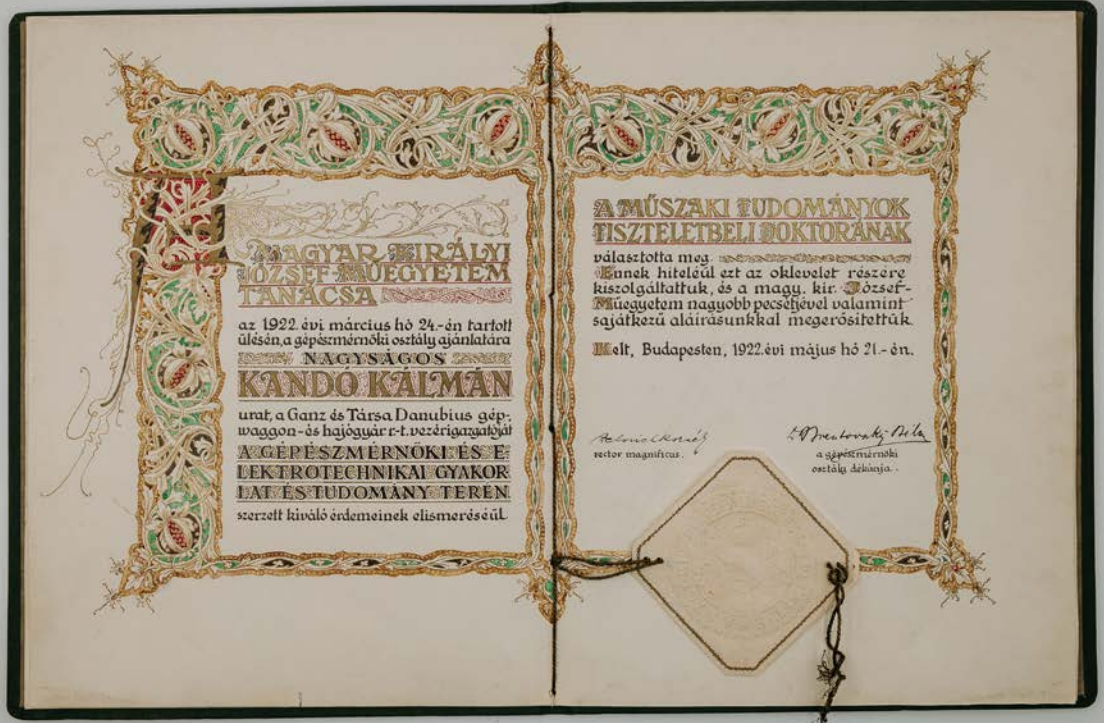 A
MAGYAR KIRÁLYI
JÓZSEF-MŰEGYETEM
TANÁCSA
az 1922. évi március hó 24.-én tartott
ülésén, a gépészmérnöki osztály ajánlatára
NAGYSÁGOS
KANDÓ KÁLMÁN
urat, a Ganz és Társa Danubius gép-,
waggon- és hajógyár r.-t. vezérigazgatóját
A GÉPÉSZMÉRNÖKI ÉS E-
LEKTROTECHNIKAI GYAKOR
LAT ÉS TUDOMÁNY TERÉN
szerzett kiváló érdemeinek elismeréséül
A MŰSZAKI TUDOMÁNYOK
TISZTELETBELI DOKTORÁNAK
választotta meg.
Ennek hiteléül ezt az oklevelet részére
kiszolgáltattuk, és a magy. kir. József-
Műegyetem nagyobb pecsétjével valamint
sajátkezű aláirásunkkal megerősitettük.
Kelt, Budapesten, 1922. évi május hó 21.-én.
rector magnificus.
Béla
a gépészmérnöki
osztály dékánja.